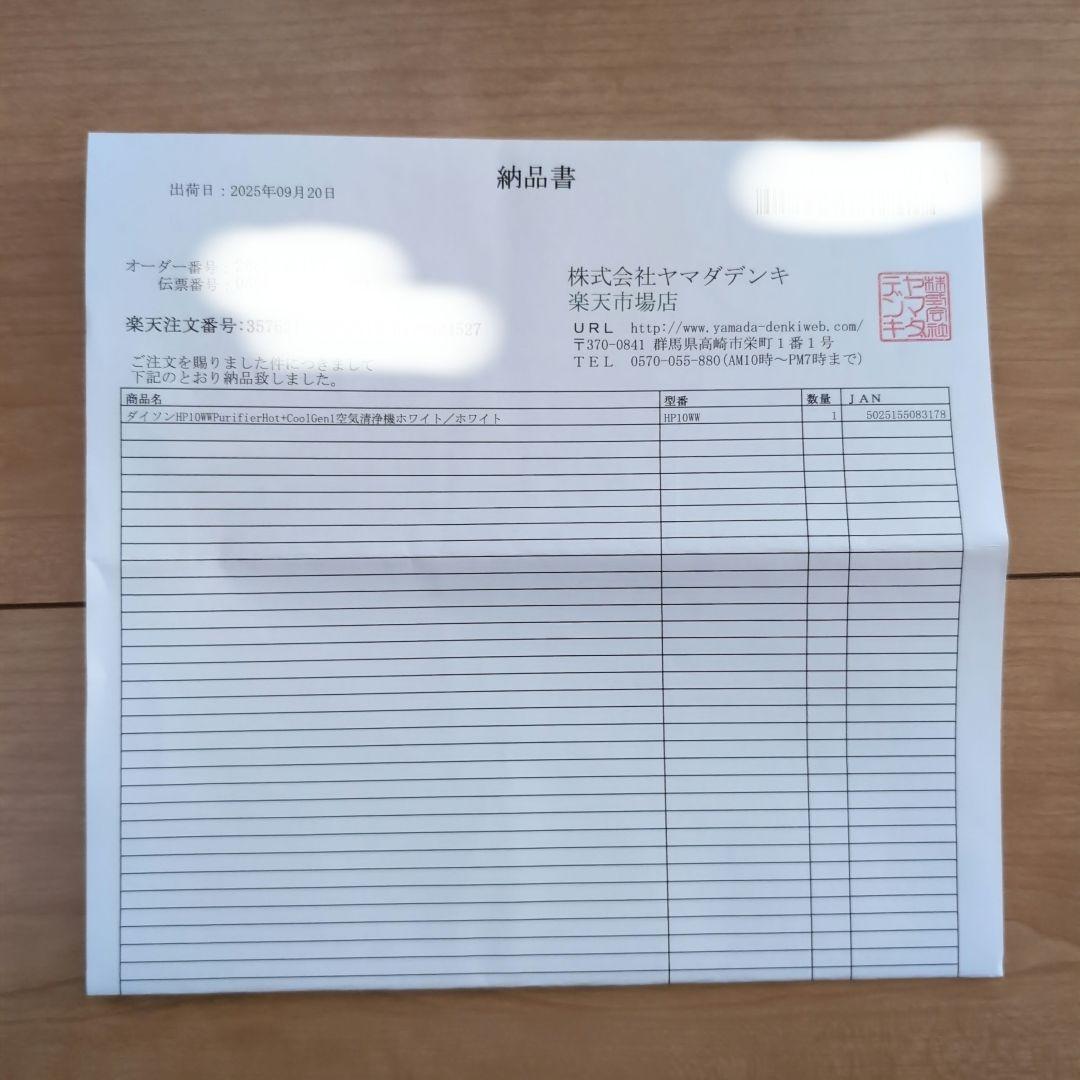 納品書
出荷日:2025年09月20日
オーダー番号:
伝票番号:
楽天注文番号:3576
527
ご注文を賜りました件につきまして
下記のとおり納品致しました。
株式会社ヤマダデンキ
楽天市場店
URL http://www.yamada-denkiweb.com/
〒370-0841 群馬県高崎市栄町1番1号
TEL 0570-055-880(AM10時~PM7時まで)
株式会社ヤマダデンキ
商品名 型番 数量 JAN
ダイソンHP10WWPurifierHot+CoolGen1空気清浄機ホワイト/ホワイト HP10WW 1 5025155083178